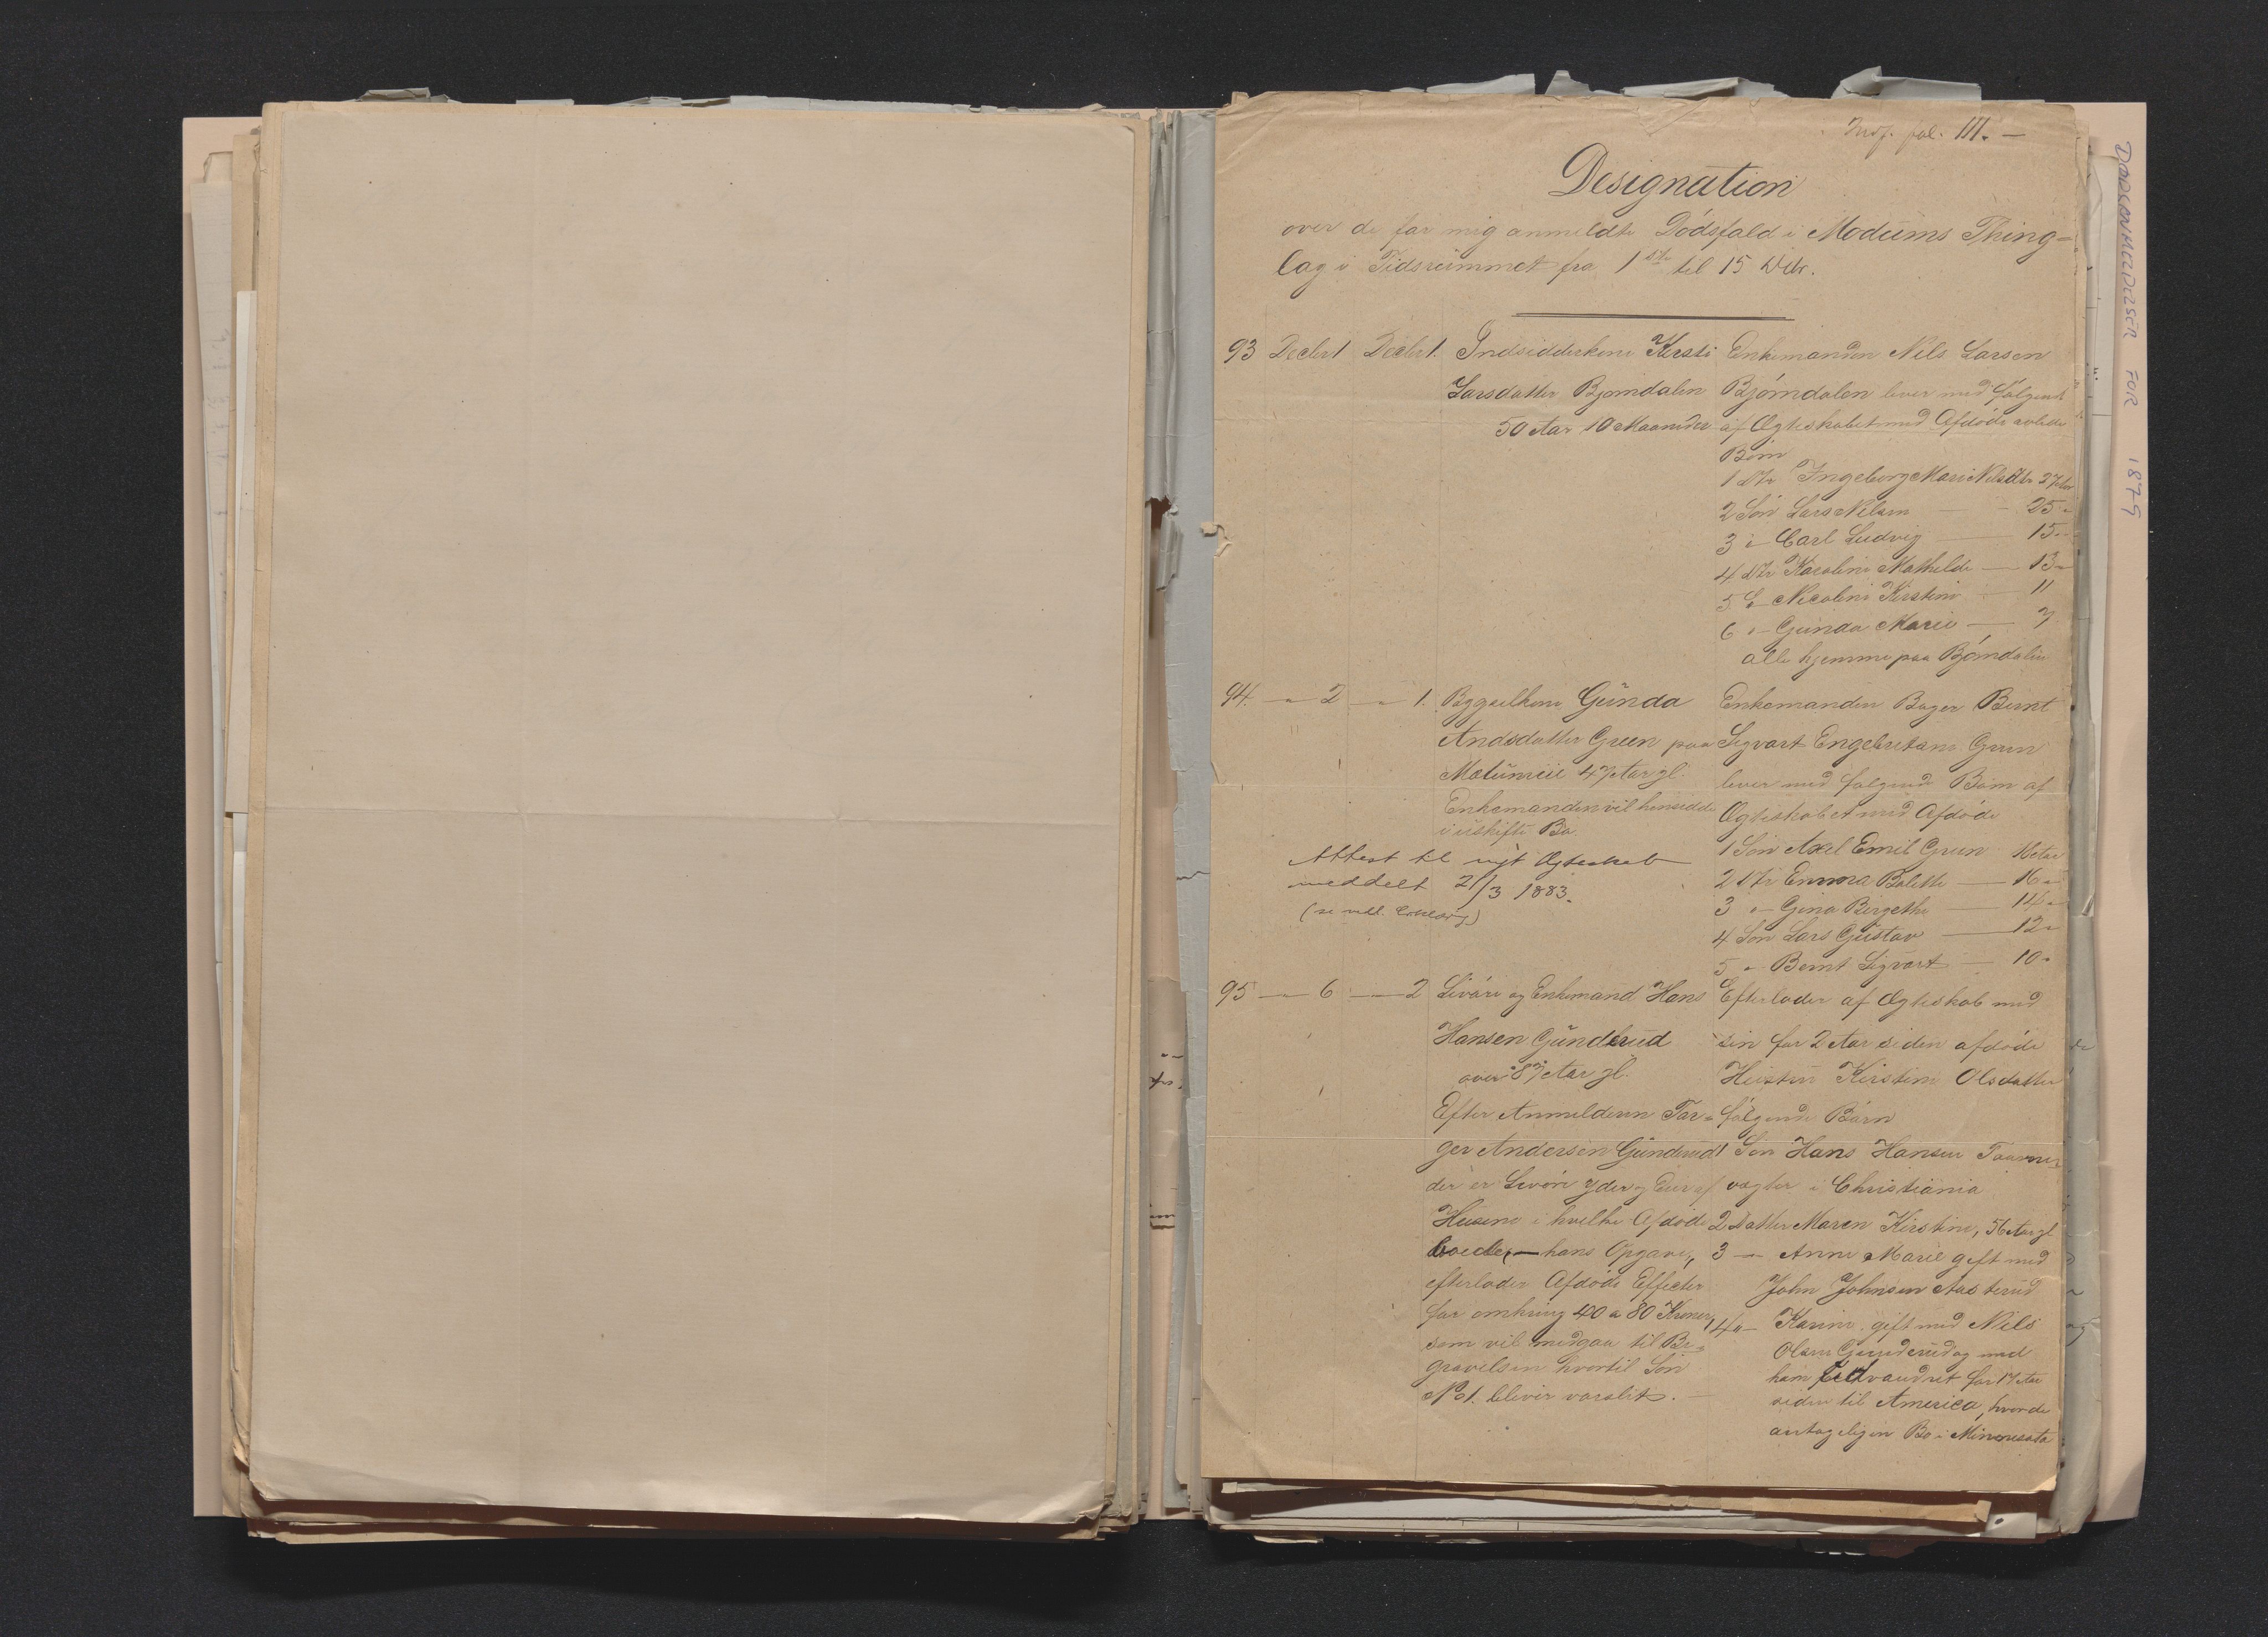 Indf. fol. 111. —
Designation
over de for mig anmeldte Dödsfald i Modums Thing=
lag i Tidsrummet fra 1ste til 15 Dcbr.
93 Decbr 1 Decbr 1. Indsidderkone Kersti
Larsdatter Bjørndalen
50 Aar 10 Maaneder
Enkemanden Nils Larsen
Bjørndalen lever med følgende
af Ægteskabet med Afdöde avlede
Börn
1 Dtr Ingeborg Marie Nilsdtr 27 Aar
2 Sön Lars Nilsen — 25 "
3 " — Carl Ludvig — 15 "
4 Dtr Karoline Mathilde — 13 "
5 " — Nicoline Kirstine — 11
6 " — Gunda Marie — 7
alle hjemme paa Bjöndalen
94. — " 2 — " 1. Byggselkone Gunda
Andsdatter Green paa
47 Aar gl.
Enkemanden vil hensidde
i uskifte Bo.
Attest til nyt Ægteskab
meddelt 21/3 1883.
Enkemanden Bager Bernt
Sigvart Engebretsen Green
lever med følgende Börn af
Ægteskabet med Afdöde
1 Sön Axel Emil Green 18 Aar
2 Dtr Emma Bolette — 16 "
3 " — Gina Birgethe — 14 "
4 Sön Lars Gustav — 12 "
5 " — Bernt Sigvart — 10 "
95 — " 6 — " 2 Livöre og Enkemand Hans
Hansen Gunderud
over 87 Aar gl.
Efter Anmelderen Tor=
ger Andersen Gunderud
der er Livöre yder og Eier af
Husene i hvilke Afdöde
boede, — hans Opgave,
efterlader Afdöde Effecter
for omkring 40 a 80 Kroner,
som vil medgaa til Be=
gravelsen hvortil Sön
No 1. bliver varslet. —
Efterlader af Ægteskab med
sin for 2 Aar siden afdöde
Hustru Kirstine Olsdatter
følgende Börn
1 Sön Hans Hansen Taarn=
vægter i Christiania
2 Datter Maren Kirstine, 56 Aar gl
3 — " Anne Marie gift med
John Johnsen Aasterud
4 " — Karine gift med Nils
Olsen Gunderud og med
ham udvandret for 17 Aar
siden til America, hvor de
antagelig en Bo i Minnesota
DØDSANMELDELSER FOR 1879